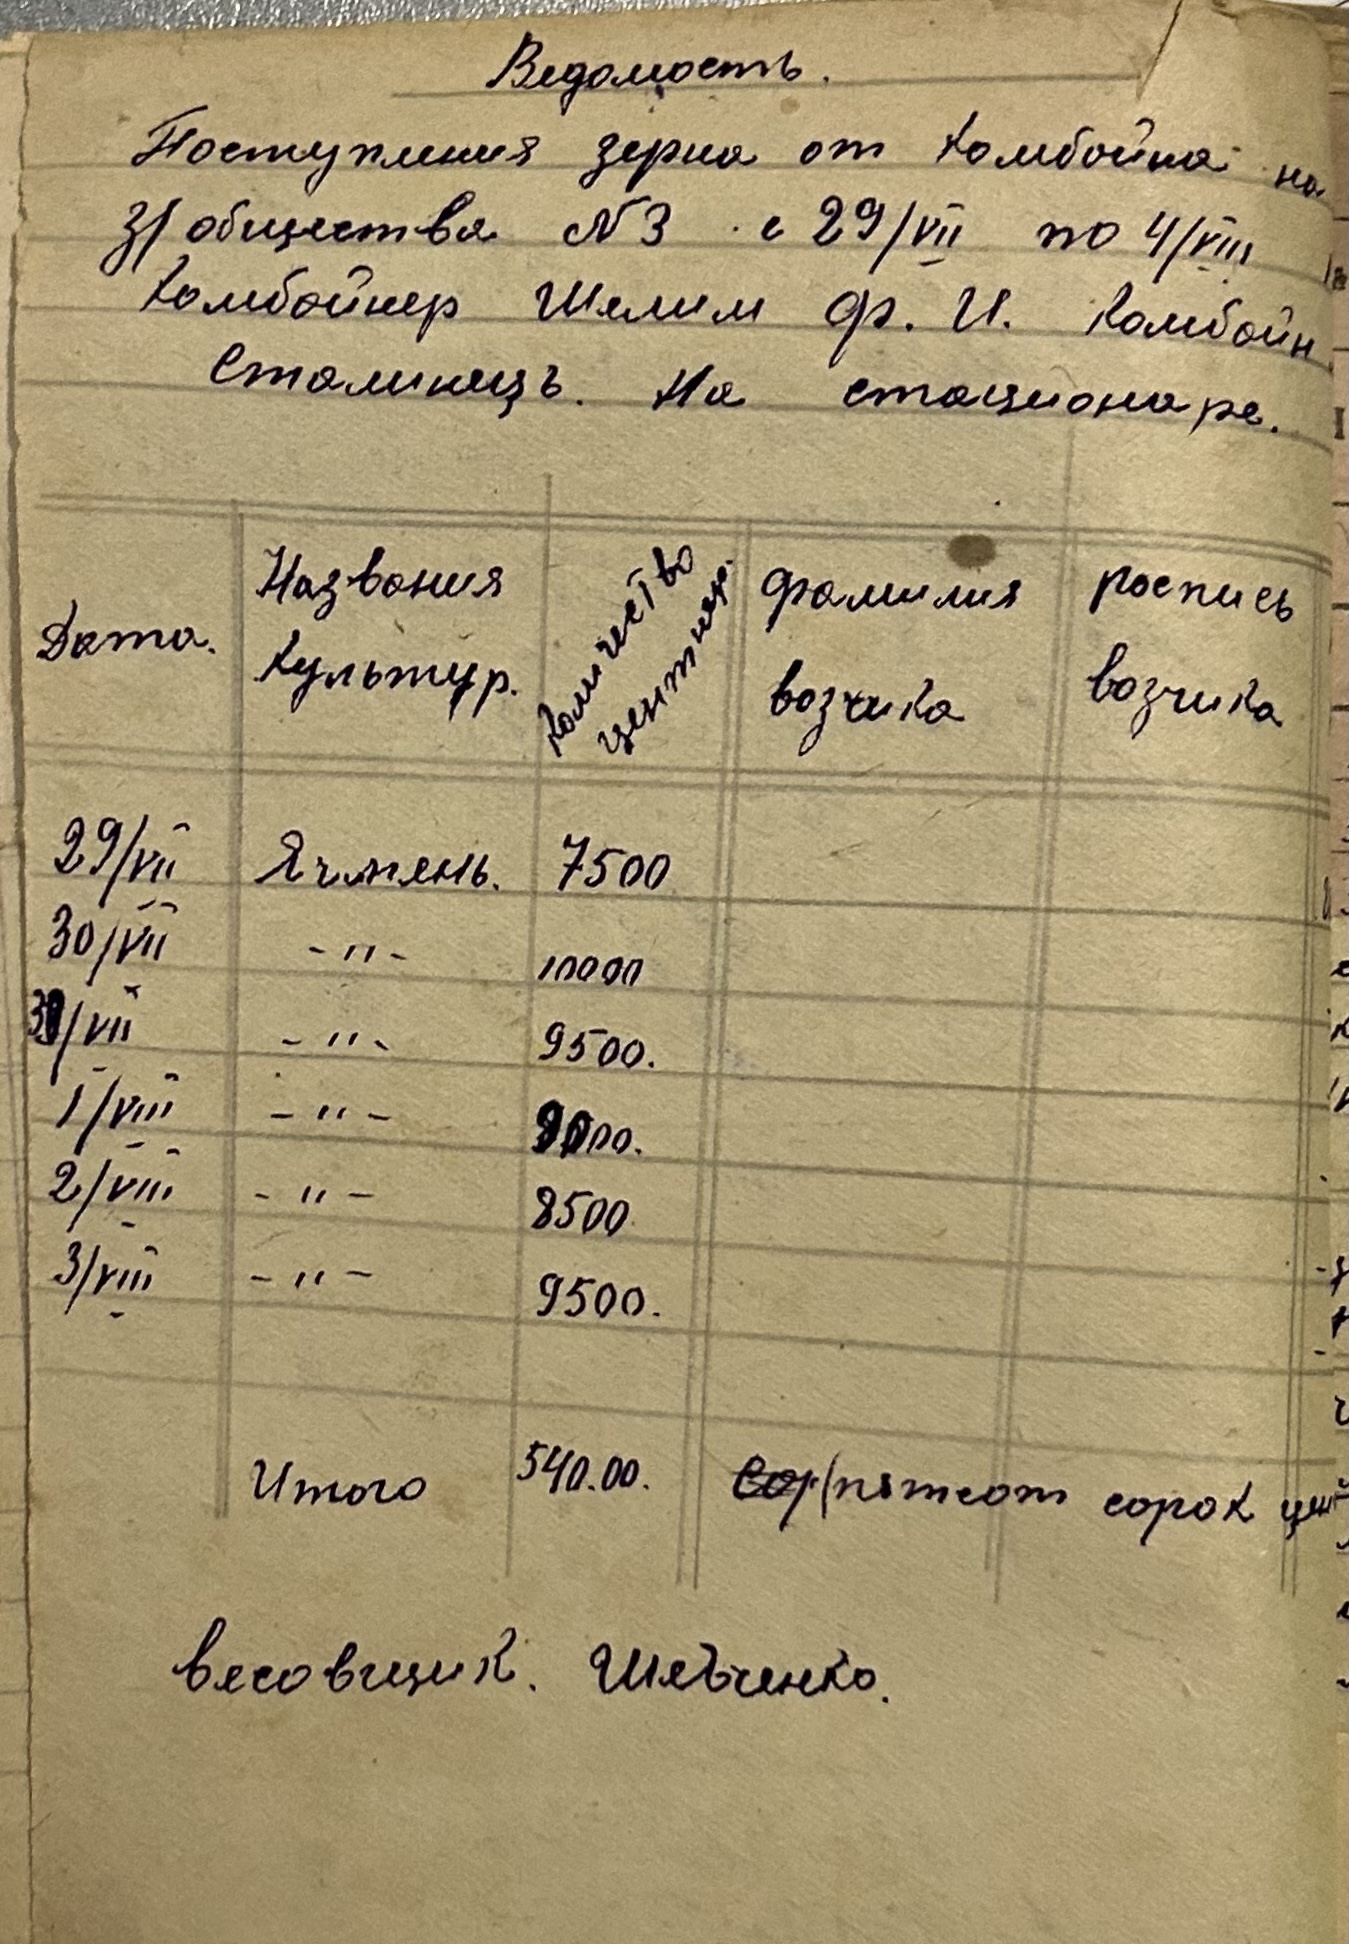 Ведомость.
Поступления зерна от комбойна на
з/общества №3 с 29/VII по 4/VIII
Комбойнер Шелим Ф. И. Комбойн
Сталинець. На стационаре.
Дата. Названия культур. Количество центнер. Фамилия возчика роспись возчика
29/VII Ячмень. 7500
30/VII -"- 10000
31/VII -"- 9500.
1/VIII -"- 9000.
2/VIII -"- 8500
3/VIII -"- 9500.
Итого 540.00. (пятсот сорок цен
Весовщик. Шевченко.